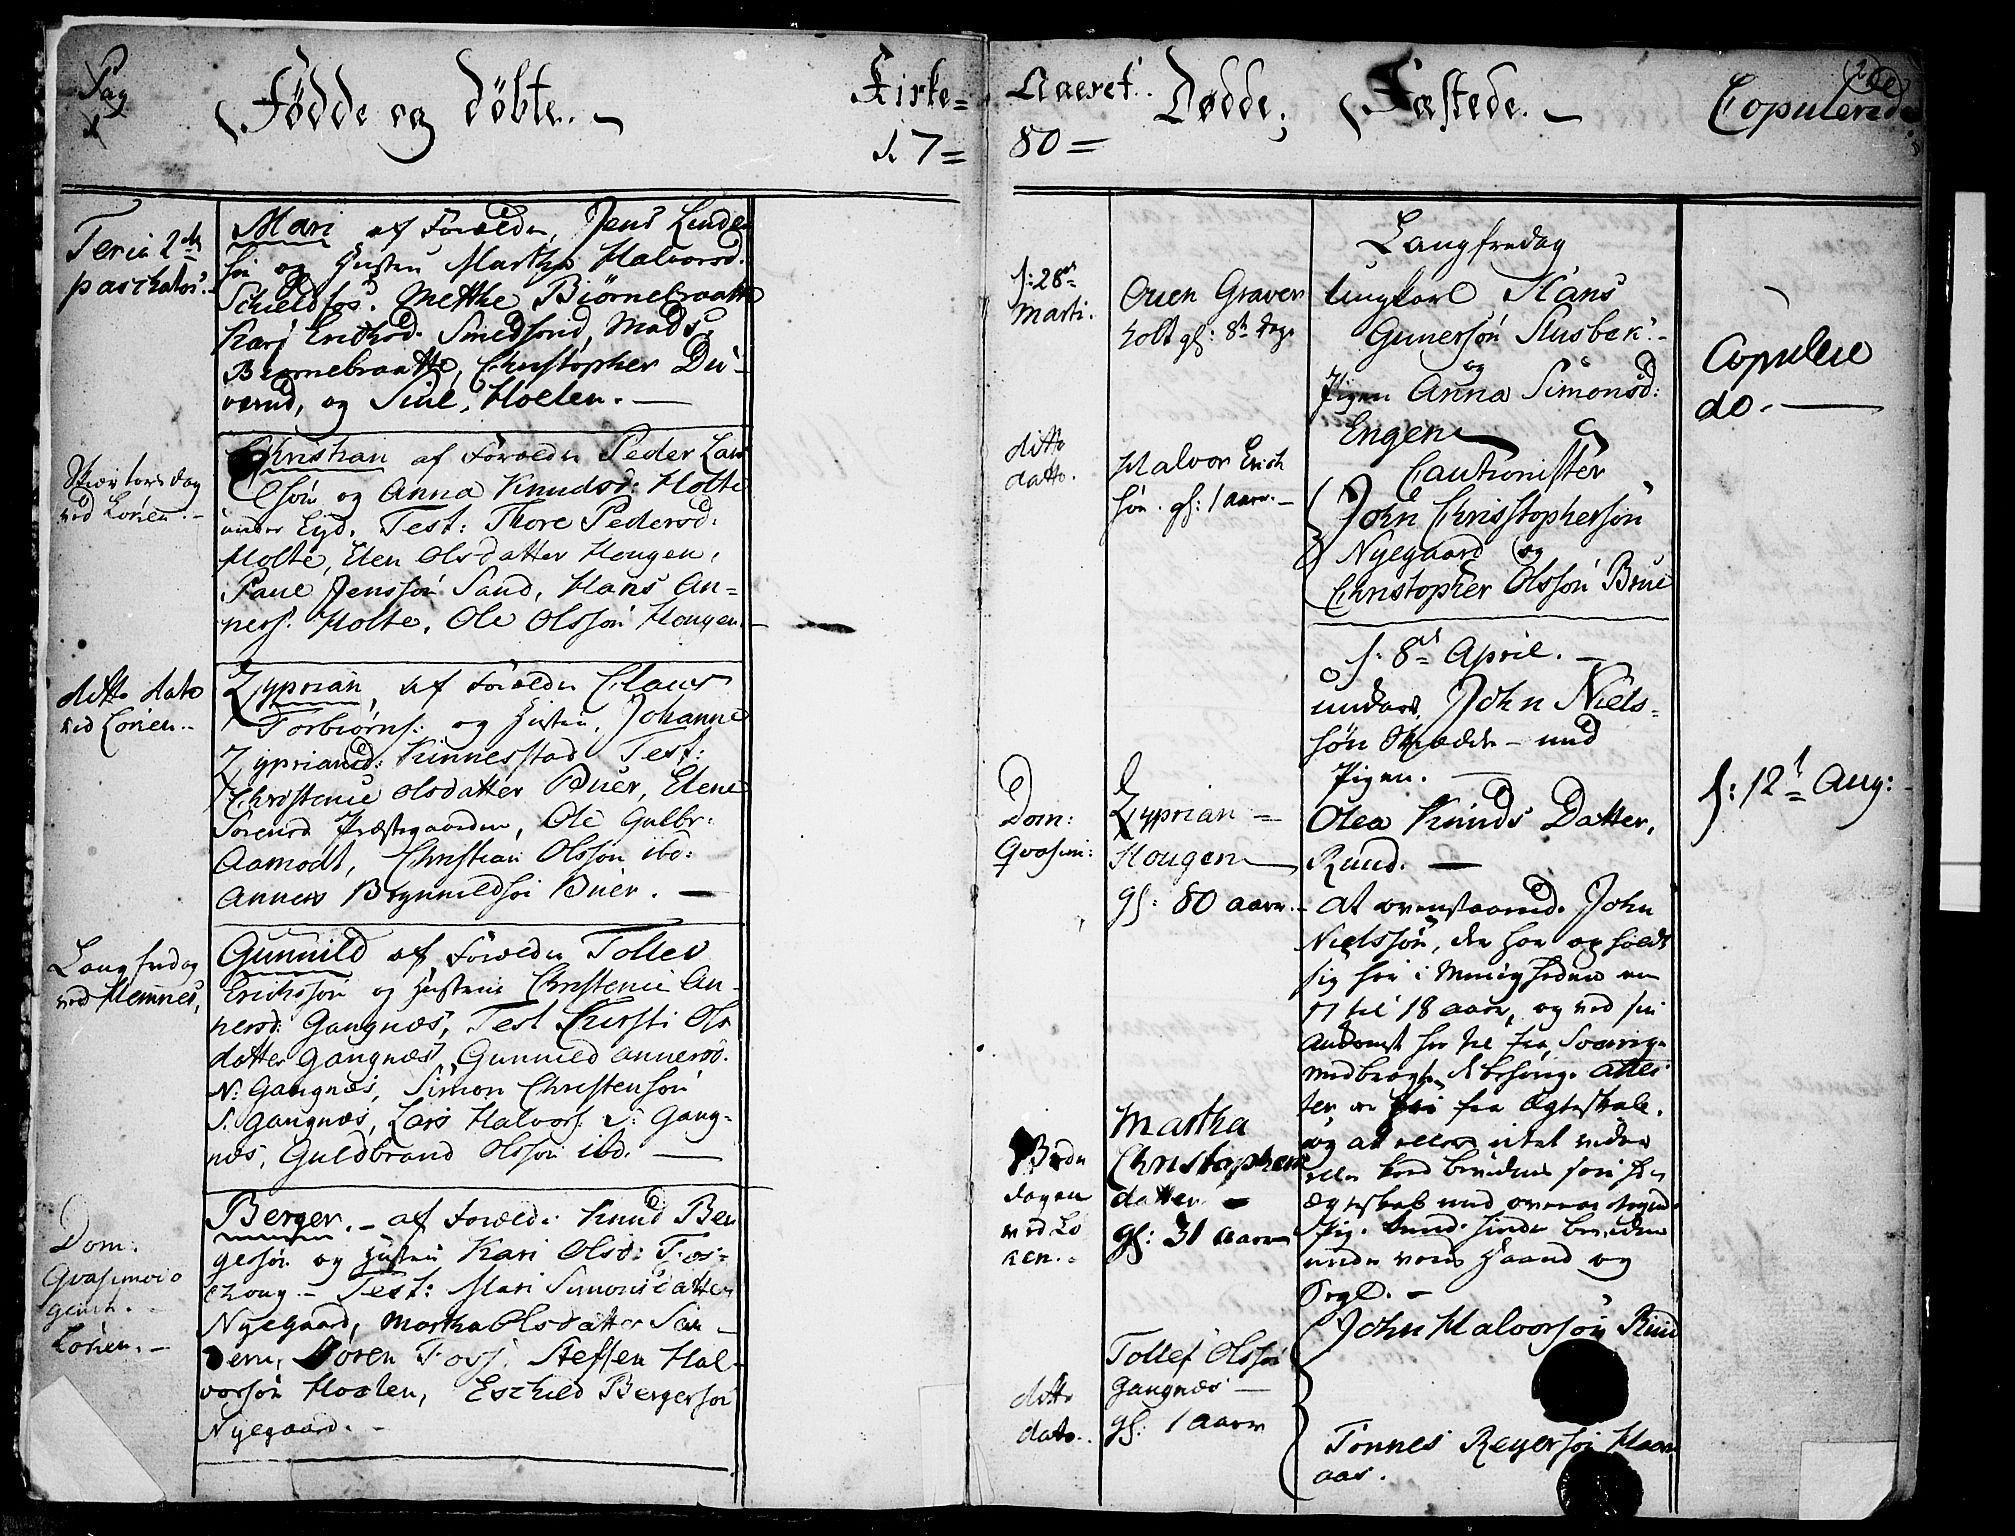 Pag
1
Fødde og døbte.
Kirke=
17=
Feria 2da
paschatos.
Mari af Forældre, Jens Linder
søn og Hustru Martha Halvorsd.
Schieldfos. Mette Biørnebraatte
Kari Erichsd. Smedsrud, Mads
Biørnebraatte, Christopher Du-
verud, og Siul, Hoelen.
Skiertorsdag
ved Lonen.
Christian af Forældre Peder Lars
søn og Anna Knudsd: Holte
under Eyd. Test: Thore Pedersd:
Holte, Elen Olsdatter Hougen,
Paul Jenssøn Sand, Hans An=
ners: Holte, Ole Olssøn Hougen.
ditto dato
ved Lonen.
Zyprian, af Forældre Claus
Torbiørns: og Hustru, Johanne
Zypriansd: Kinnestad Test:
Christence Olsdatter Buer, Elene
Sørensd Præstegaarden, Ole Gulbr:
Aamodt, Christian Olssøn ibd:
Anners Brynnildsøn Buer.
Langfredag
ved Hemnes,
Gunnild af Forældre Tollev
Erichssøn og Hustru Christence An-
nersd: Gangnæs, Test Kirsti Ols
datter Gangnæs, Gunnild Annersd.
N: Gangnæs, Simon Christensøn
S. Gangnæs, Lars Halvors: S: Gang-
næs, Guldbrand Olssøn ibd.
Dom:
Qvasimodo
genit.
Lonen.
Berger. - af Forældr: Knud Ber
gersøn og Hustru Kari Olsd: Fos=
houg. - Test: Mari Simonsdatter
Nyegaard, Martha Olsdatter San
dern, Søren Foss, Steffen Hal-
vorsøn Hoelen, Eschild Bergersøn
Nyegaard.
Aaret.
80=
Dødde,
Fæstede.
Copulerede
d: 28de
Marti.
Ouen Graver
holt gl: 8te Dage
ditto
dato.
Halvor Erich
søn. gl: 1 aar.
Dom:
Qvasim:
Zyprian
Hougen
gl: 80 aar.
Bede
dagen
ved Lo
nen.
Martha
Christophers
datter
gl: 31 aar
ditto
dato.
Tollef Olssøn
Gangnæs
gl: 1 aar
Langfredag
Ungkarl Hans
Gunersøn Slusbek.
og
Pigen Anna Simonsd:
Engen
Cautionister
John Christophersøn
Nyegaard og
Christopher Olssøn Brue
d: 8de April.
John Niels=
søn - med
Pigen.
Olea Knuds Datter,
Ruud.
At ovenstaaende John
Nielssøn, der har opholdt
sig her i Meenigheden en
17 til 18 aar, og ved sin
Ankomst her til fra Sverrig
medbragte attes
ter er frie fra Ægteskab.
og at ellers intet videre
Ægteskab med ovenanførte
Pige
under vores Haand og
Segl.
John Halvorsøn Ruud
Tonnes Reyersøn Haar
aas.
Copulere
do.
d: 12te Aug: